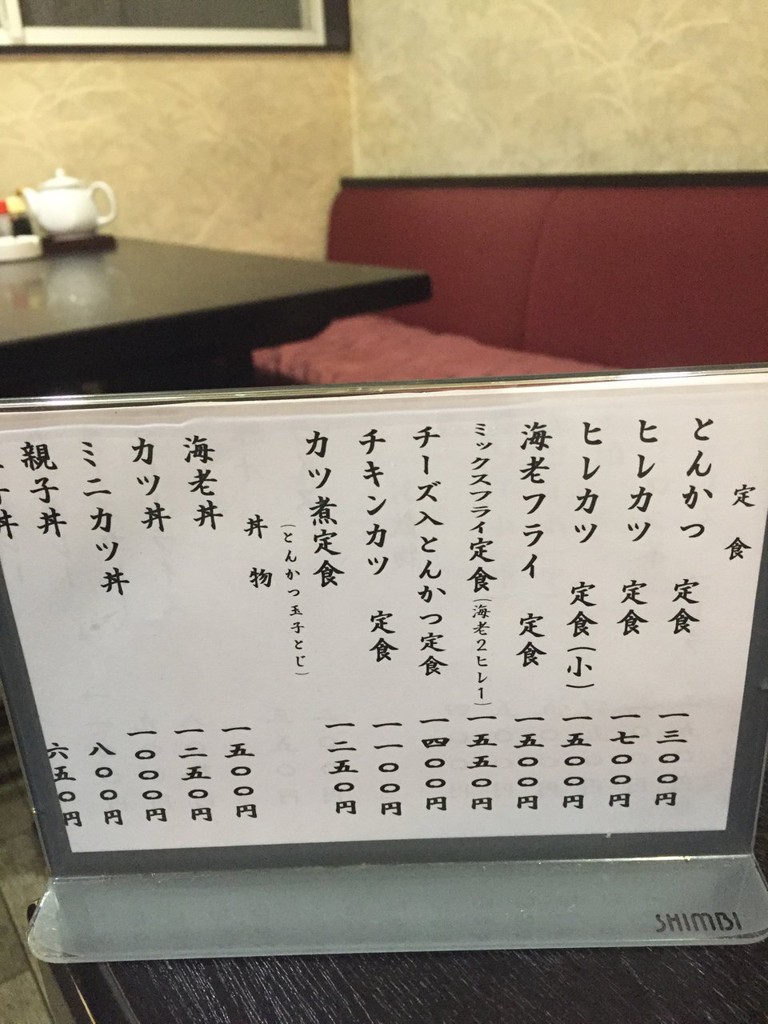 定食
とんかつ 定食 一三〇〇円
ヒレカツ 定食 一七〇〇円
ヒレカツ 定食(小) 一五〇〇円
海老フライ 定食 一五〇〇円
ミックスフライ定食(海老2ヒレ1) 一五五〇円
チーズ入とんかつ定食 一四〇〇円
チキンカツ 定食 一一〇〇円
カツ煮定食 一二五〇円
(とんかつ玉子とじ)
丼物
海老丼 一五〇〇円
カツ丼 一二五〇円
ミニカツ丼 一〇〇〇円
親子丼 八〇〇円
子丼 六五〇円
SHIMBI